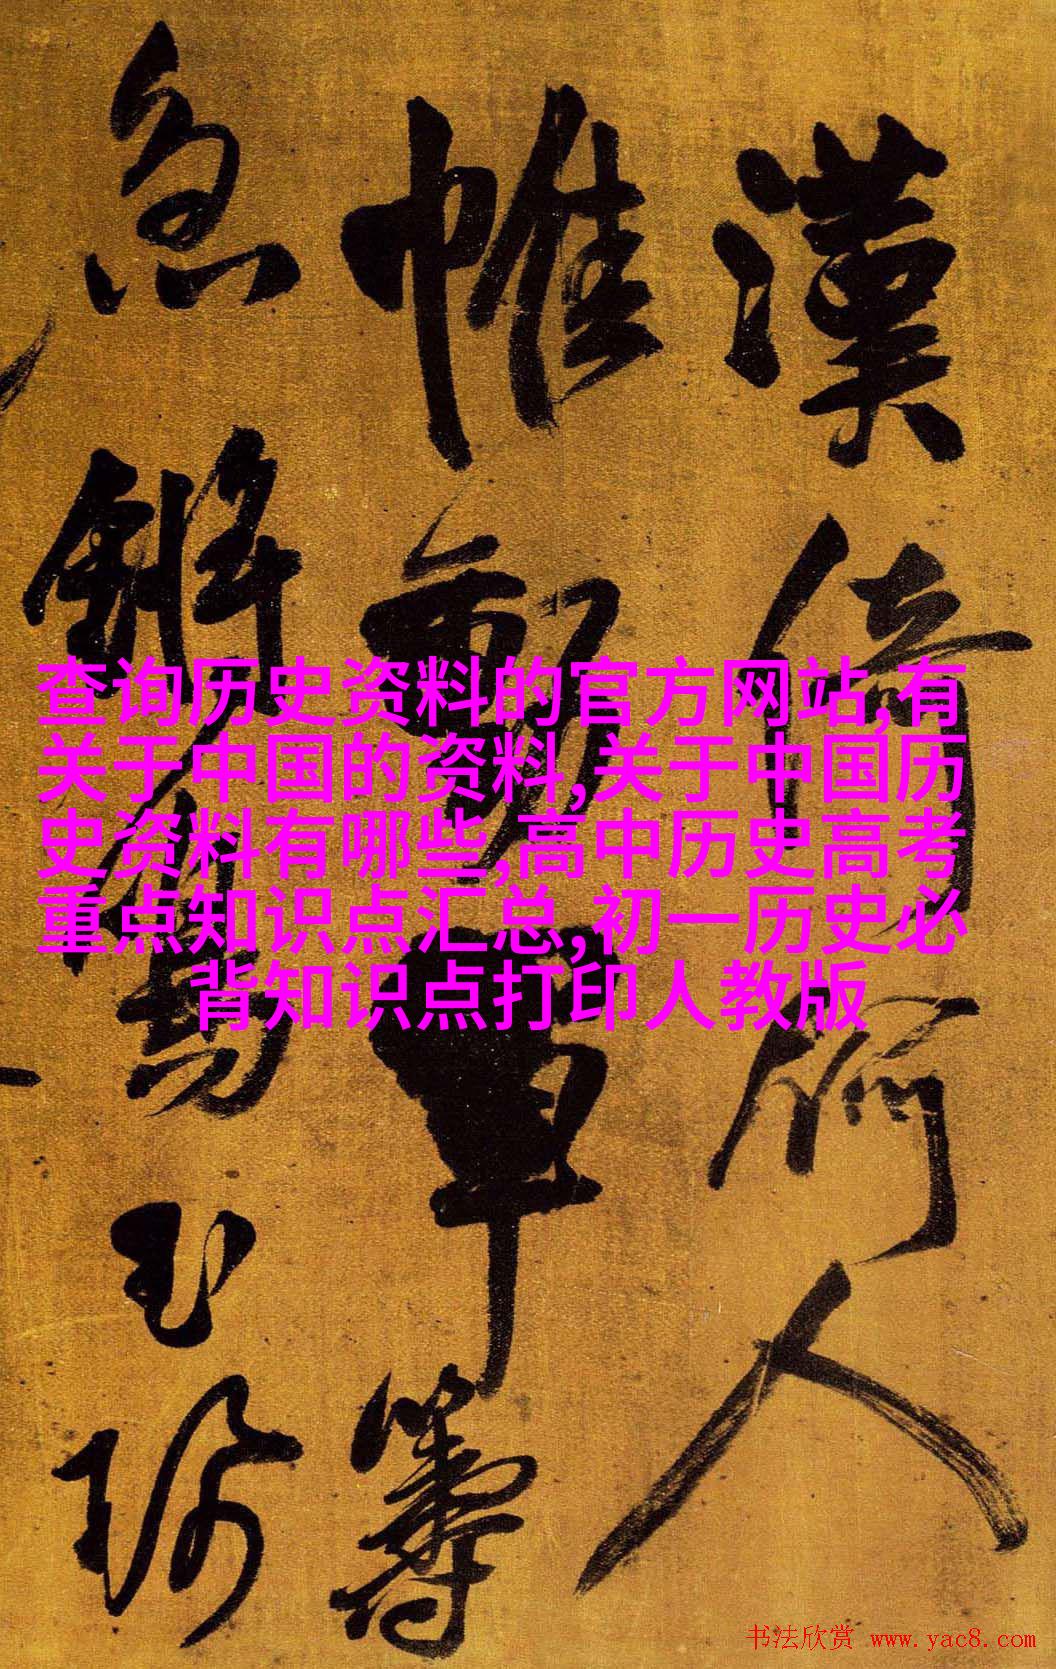 漢倚何人
帷軍籌
急玉
查询历史资料的官方网站,有
关于中国的资料,关于中国历
史资料有哪些,高中历史高考
重点知识点汇总,初一历史必
背知识点打印人教版
书法欣赏 www.yac8.com